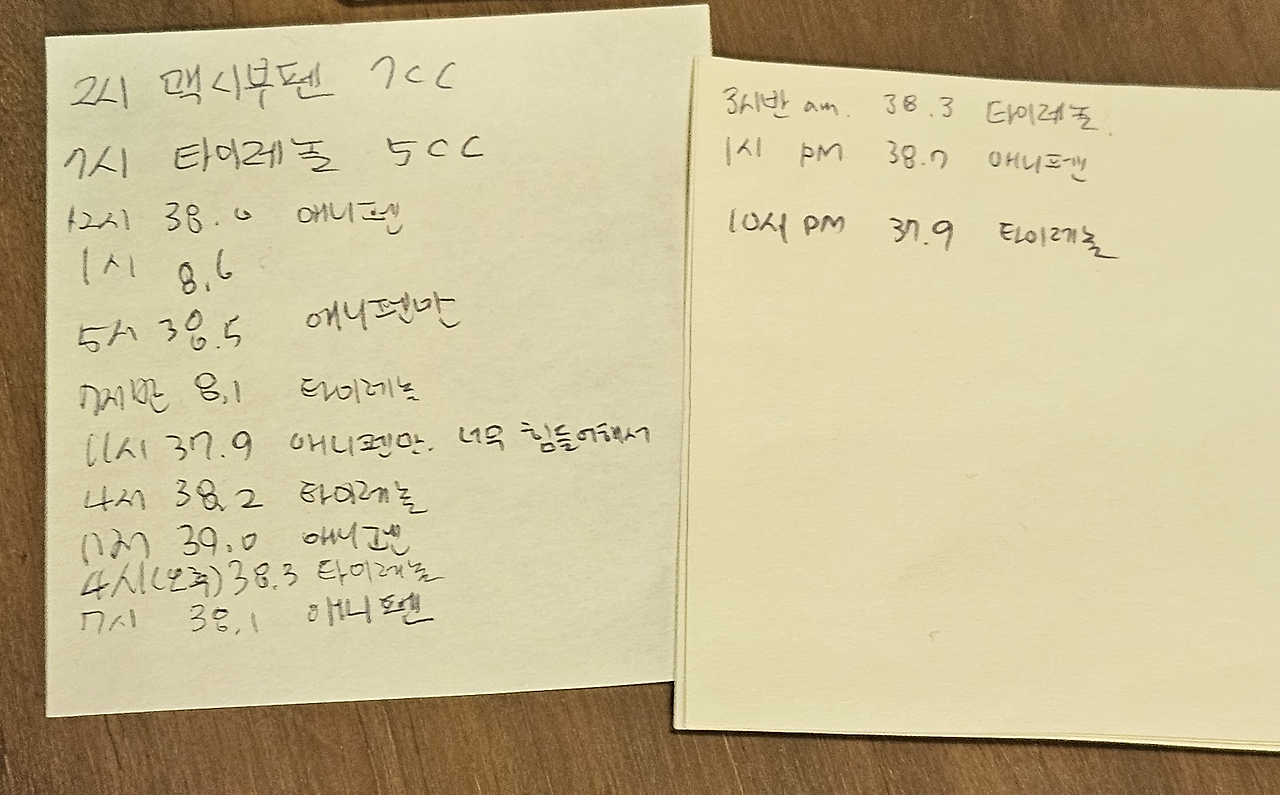 2시 맥시부펜 7CC
7시 타이레놀 5CC
12시 38.6 애니펜
1시 8.6
5시 38.5 애니펜만
7시반 8.1 타이레놀
11시 37.9 애니펜만. 너무 힘들어해서
4시 38.2 타이레놀
39.0 애니펜
4시(오후) 38.3 타이레놀
7시 38.1 애니펜
3시반 am. 38.3 타이레놀.
1시 PM 38.7 애니펜
10시 PM 37.9 타이레놀